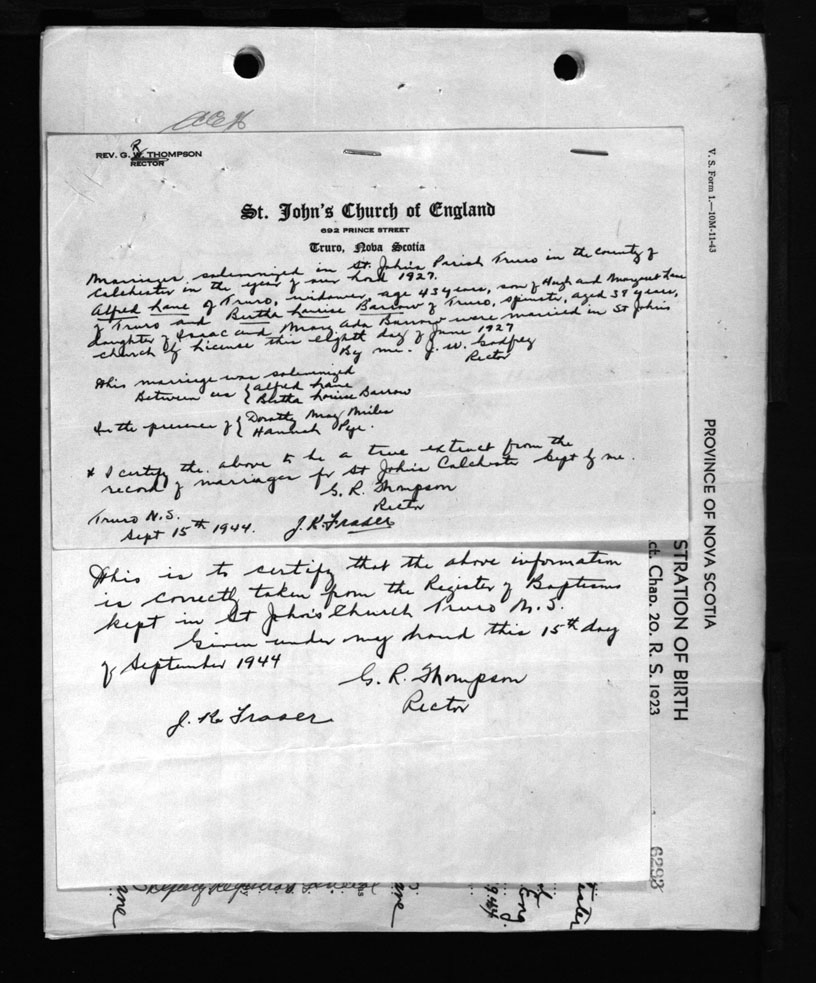 REV. G. R. THOMPSON
RECTOR
St. John's Church of England
692 PRINCE STREET
Truro, Nova Scotia
Marriages solemnized in St. John's Parish Truro in the County of
Colchester in the year of our Lord 1927.
Alfred Lane of Truro, widower, age 43 years, son of Hugh and Margaret Lane
of Truro and Bertha Louise Barrow of Truro, spinster, aged 38 years,
daughter of Isaac and Mary Ada Barrow were married in St Johns
church by License this eighth day of June 1927
By me. J. W. Godfrey
Rector
This marriage was solemnized
Between us { Alfred Lane
Bertha Louise Barrow
In the presence of { Dorothy May Miles
Hannah Pye.
I certify the above to be a true extract from the
record of marriages for St John's Colchester kept by me.
G. R. Thompson
Rector
Truro N.S.
Sept 15th 1944.
J. K. Fraser
This is to certify that the above information
is correctly taken from the Register of Baptisms
kept in St John's Church Truro N.S.
Given under my hand this 15th day
of September 1944
G. R. Thompson
Rector
J. K. Fraser
Deputy Registrar General
V. S. Form 1.—10M-11-43
PROVINCE OF NOVA SCOTIA
STRATION OF BIRTH
ct. Chap. 20, R. S. 1923
6293